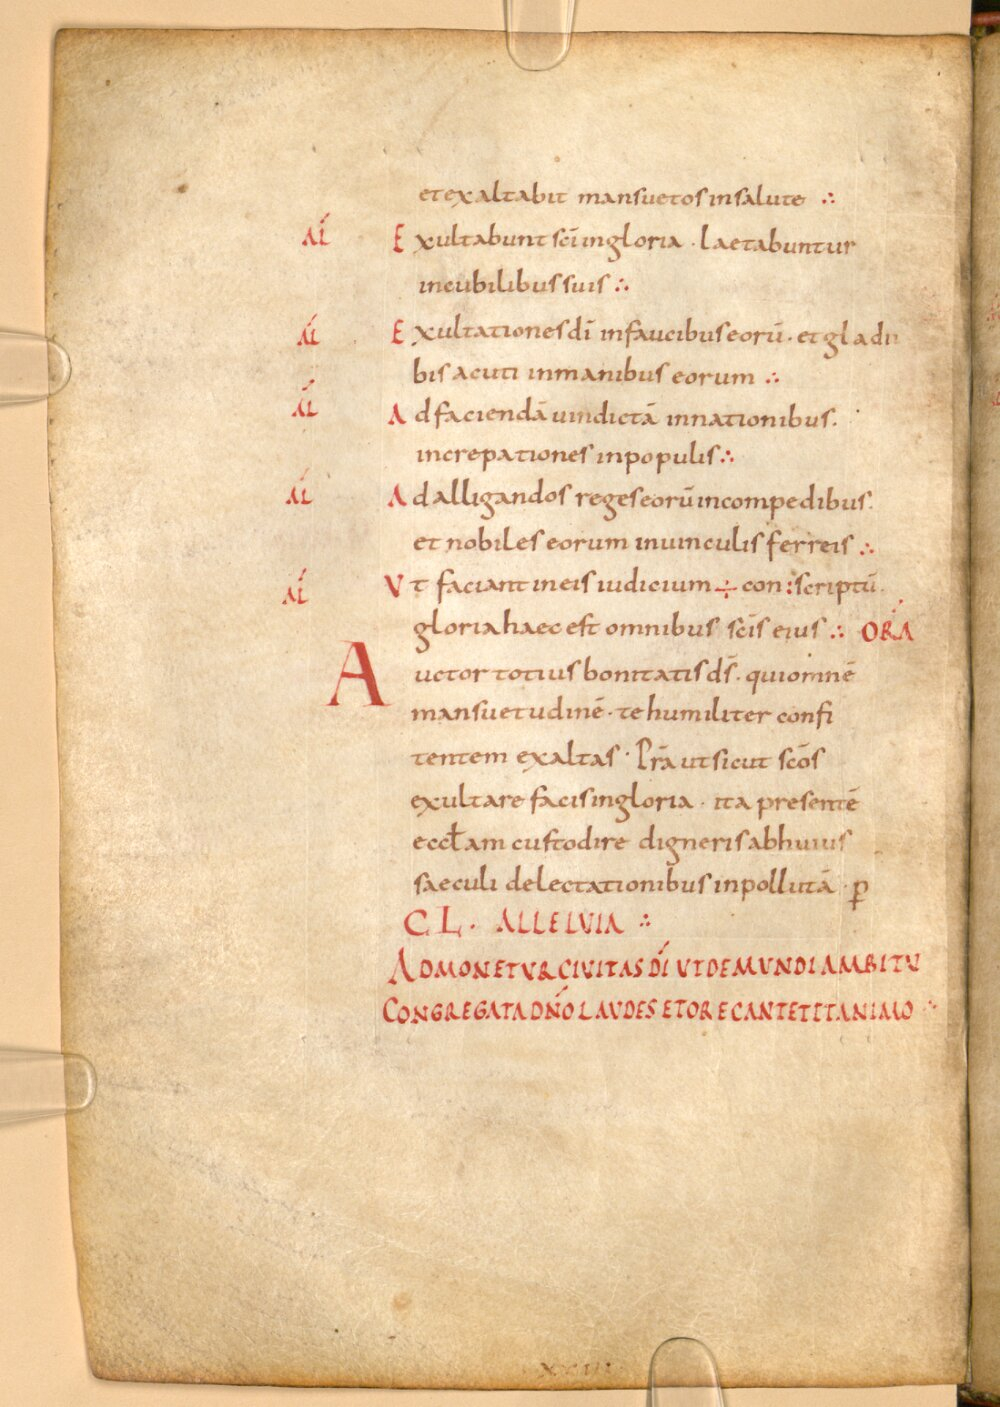 et exaltabit mansuetos in salute ∴
AL Exultabunt sc̄i in gloria · laetabuntur
in cubilibus suis ∴
AL Exultationes dī in faucibus eorū · et gladii
bis acuti in manibus eorum ∴
AL Ad faciendā uindictā in nationibus.
increpationes in populis ∴
AL Ad alligandos reges eorū in compedibus.
et nobiles eorum in uinculis ferreis ∴
AL Vt faciant in eis iudicium ÷ con : scriptū.
gloria haec est omnibus sc̄is eius ∴ ORA
Auctor totius bonitatis ds̄ · qui omnē
mansuetudinē · te humiliter confi
tentem exaltas · Prā ut sicut sc̄os
exultare facis in gloria · ita presentē
eccl̄am custodire digneris ab huius
saeculi delectationibus inpollutā · p
CL · ALLELVIA ∴
ADMONETVR CIVITAS DI VT DE MVNDI AMBITV
CONGREGATA DNO LAVDES ET ORE CANTET ET ANIMO ∴